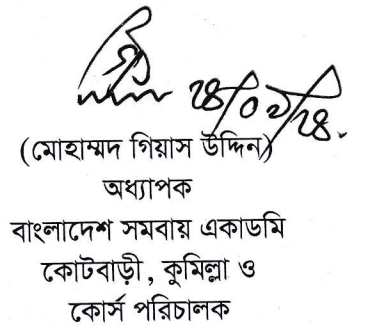 ২৪/০২/২৪.
(মোহাম্মদ গিয়াস উদ্দিন)
অধ্যাপক
বাংলাদেশ সমবায় একাডমি
কোটবাড়ী, কুমিল্লা ও
কোর্স পরিচালক